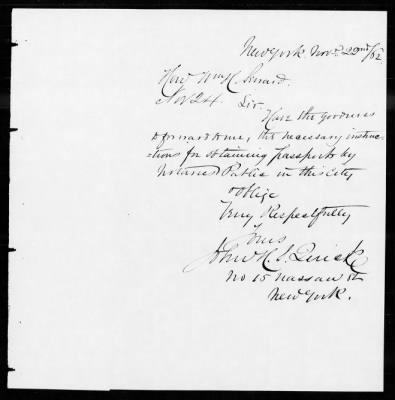 New York, Nov. 22nd /62
Hon. Wm H. Seward.
Nov 24. Sir.
Have the goodness
to forward to me, the necessary instruc-
-tions for obtaining passports by
Notaries Public in this City
& oblige
Very Respectfully
Yours
John H. S.
No 15 Nassau St
New York.